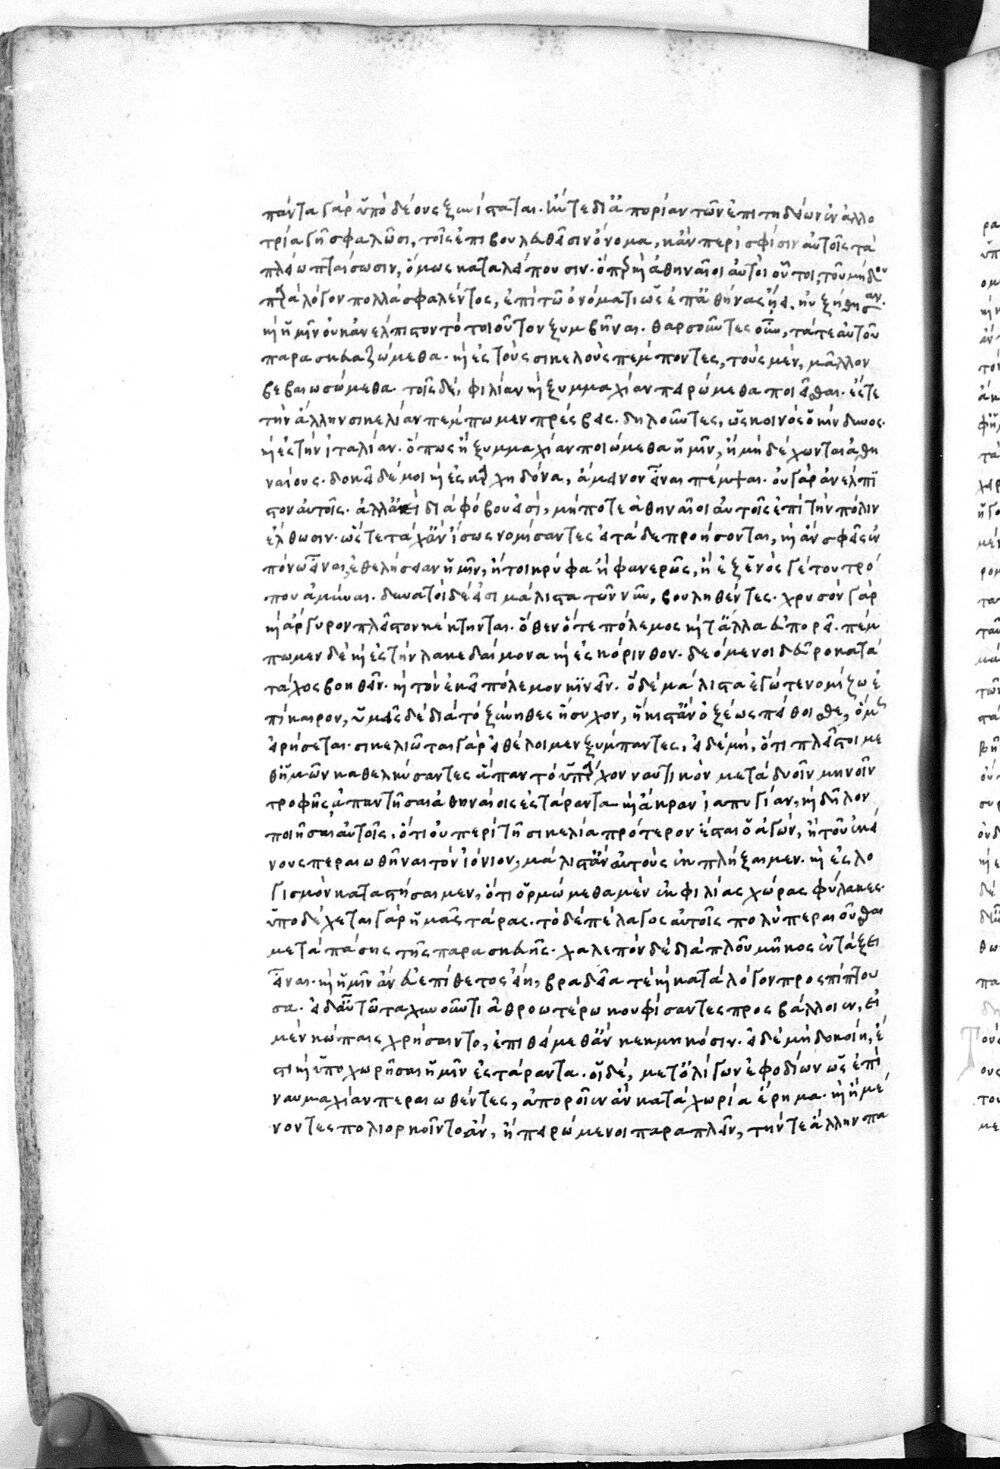 πάντα γὰρ ὑπὸ δέους ξυνίσταται. ἤν τε δι' ἀπορίαν τῶν ἐπιτηδείων ἐν ἀλλο
τρία γῆ σφαλῶσι, τοῖς ἐπιβουλευθεῖσιν ὄνομα, κἂν περὶ σφίσιν αὐτοῖς τὰ
πλείω πταίσωσιν, ὅμως καταλείπουσιν. ὅπερ καὶ ἀθηναῖοι αὐτοὶ οὗτοι, τοῦ μήδου
παρὰ λόγον πολλὰ σφαλέντος, ἐπὶ τῶ ὀνόματι ὡς ἐπ' ἀθήνας ἤει, ηὐξήθησαν.
καὶ ἡμῖν οὐκ ἀνέλπιστον τὸ τοιοῦτον ξυμβῆναι. θαρσοῦντες οὖν, τά τε αὐτοῦ
παρασκευαζώμεθα. καὶ ἐς τοὺς σικελοὺς πέμποντες, τοὺς μέν, μᾶλλον
βεβαιωσώμεθα. τοῖς δέ, φιλίαν καὶ ξυμμαχίαν πειρώμεθα ποιεῖσθαι. ἔς τε
τὴν ἄλλην σικελίαν πέμπωμεν πρέσβεις. δηλοῦντες, ὡς κοινὸς ὁ κίνδυνος.
καὶ ἐς τὴν ἰταλίαν. ὅπως ἢ ξυμμαχίαν ποιώμεθα ἡμῖν, ἢ μὴ δέχωνται ἀθη
ναίους. δοκεῖ δέ μοι καὶ ἐς καρχηδόνα, ἄμεινον εἶναι πέμψαι. οὐ γὰρ ἀνέλπι
στον αὐτοῖς. ἀλλ' ἀεὶ διὰ φόβου εἰσί, μήποτε ἀθηναῖοι αὐτοῖς ἐπὶ τὴν πόλιν
ἔλθωσιν. ὥστε τάχ' ἂν ἴσως νομίσαντες εἰ τάδε προήσονται, καὶ ἂν σφεῖς ἐν
πόνω εἶναι, ἐθελήσειαν ἡμῖν, ἤτοι κρύφα ἢ φανερῶς, ἢ ἐξ ἑνός γέ του τρό
που ἀμῦναι. δυνατοὶ δέ εἰσι μάλιστα τῶν νῦν, βουληθέντες. χρυσὸν γὰρ
καὶ ἄργυρον πλεῖστον κέκτηνται. ὅθεν ὅ τε πόλεμος καὶ τἄλλα εὐπορεῖ. πέμ
πωμεν δὲ καὶ ἐς τὴν λακεδαίμονα καὶ ἐς κόρινθον. δεόμενοι δεῦρο κατὰ
τάχος βοηθεῖν. καὶ τὸν ἐκεῖ πόλεμον κινεῖν. ὃ δὲ μάλιστα ἐγώ τε νομίζω ἐ
πίκαιρον, ὑμεῖς δὲ διὰ τὸ ξύνηθες ἥσυχον, ἥκιστ' ἂν ὀξέως πείθοισθε, ὅμως
εἰρήσεται. σικελιῶται γὰρ εἰ θέλοιμεν ξύμπαντες, εἰ δὲ μή, ὅτι πλεῖστοι με
θ' ἡμῶν καθελκύσαντες ἅπαν τὸ ὑπάρχον ναυτικὸν μετὰ δυοῖν μηνοῖν
τροφῆς, ἀπαντῆσαι ἀθηναίοις ἐς τάραντα καὶ ἄκραν ἰαπυγίαν, καὶ δῆλον
ποιῆσαι αὐτοῖς, ὅτι οὐ περὶ τῆ σικελία πρότερον ἔσται ὁ ἀγών, ἢ τοῦ ἐκεί
νους περαιωθῆναι τὸν ἰόνιον, μάλιστ' ἂν αὐτοὺς ἐκπλήξαιμεν. καὶ ἐς λο
γισμὸν καταστήσαιμεν, ὅτι ὁρμώμεθα μὲν ἐκ φιλίας χώρας φύλακες.
ὑποδέχεται γὰρ ἡμᾶς τάρας. τὸ δὲ πέλαγος αὐτοῖς πολὺ περαιοῦσθαι
μετὰ πάσης τῆς παρασκευῆς. χαλεπὸν δὲ διὰ πλοῦ μῆκος ἐν τάξει
εἶναι. καὶ ἡμῖν ἂν εὐεπίθετος εἴη, βραδεῖά τε καὶ κατὰ λόγον προσπίπτου
σα. εἰ δ' αὖ τῶ ταχυναυτοῦντι ἀθροωτέρω κουφίσαντες προσβάλλοιεν, εἰ
μὲν κώπαις χρήσαιντο, ἐπιθείμεθ' ἂν κεκμηκόσιν. εἰ δὲ μὴ δοκοίη, ἔ
στι καὶ ὑποχωρῆσαι ἡμῖν ἐς τάραντα. οἱ δέ, μετ' ὀλίγων ἐφοδίων ὡς ἐπὶ
ναυμαχίαν περαιωθέντες, ἀποροῖεν ἂν κατὰ χωρία ἔρημα. καὶ ἢ μέ
νοντες πολιορκοῖντο ἄν, ἢ πειρώμενοι παραπλεῖν, τήν τε ἄλλην πα